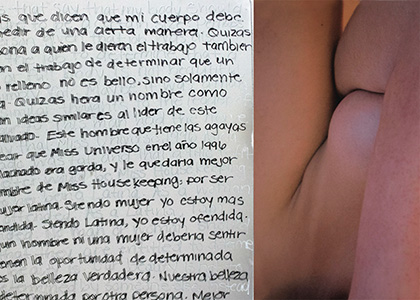 s que dicen que mi cuerpo debe
medir de una cierta manera. Quizas
sona a quien le dieran el trabajo tambien
on el trabajo de determinar que un
o relleno no es bello, sino solamente
a. Quizas hera un nombre como
on ideas similares al lider de este
alvado. Este hombre que tiene las agayas
ear que Miss Universo en el año 1996
lachado era gorda, y le quedaria mejor
mbre de Miss Housekeeping: por ser
ujer latina. Siendo mujer yo estoy mas
ndida. Siendo Latina, yo estoy ofendida.
gun hombre ni una mujer deberia sentir
enen la oportunidad de determinada
es la belleza verdadera. Nuestra belleza
determinada por otra persona. Mejor